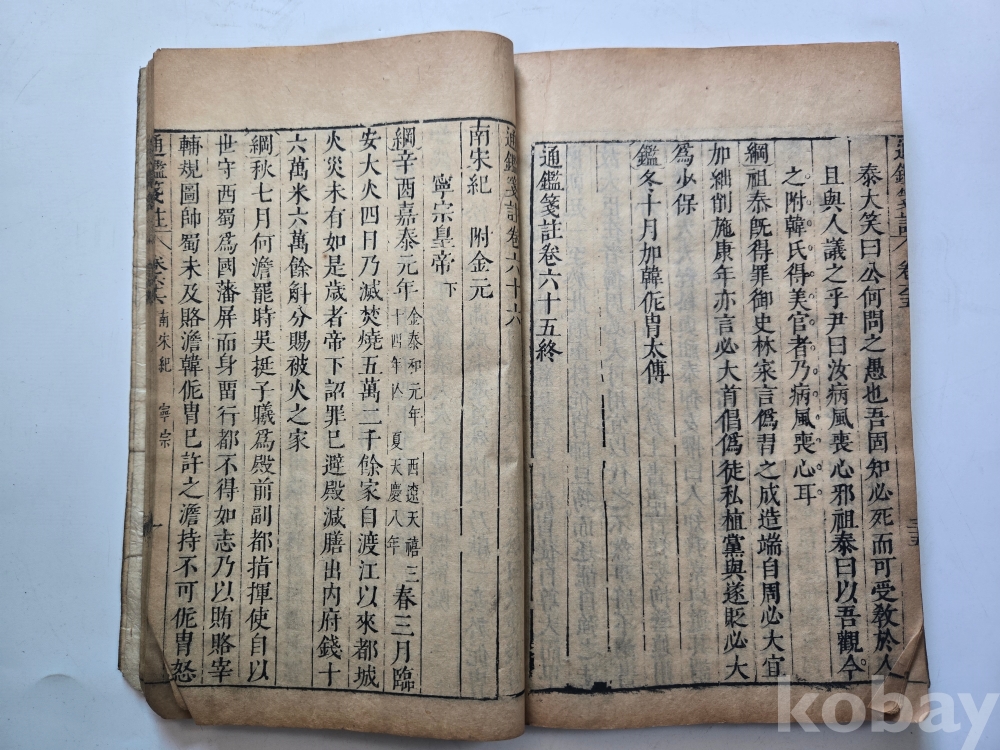 泰大笑曰公何問之愚也吾固知必死而可受教於人
且與人議之乎尹曰汝病風喪心邪祖泰曰以吾觀今
之附韓氏得美官者乃病風喪心耳
綱祖泰既得罪御史林寀言偽習之成造端自周必大宜
加絀削施康年亦言必大首倡偽徒私植黨與遂貶必大
為少保
鑑冬十月加韓侂冑太傅
通鑑箋註卷六十五終
通鑑箋註卷六十六
南宋紀 附金元
寧宗皇帝 下
綱辛酉嘉泰元年 金泰和元年 西遼天禧三十四年 夏天慶八年 春三月臨
安大火四日乃滅焚燒五萬二千餘家自渡江以來都城
火災未有如是歲者帝下詔罪己避殿減膳出內府錢十
六萬米六萬餘斛分賜被火之家
綱秋七月何澹罷時吳挺子曦為殿前副都指揮使自以
世守西蜀為國藩屏而身留行都不得如志乃以賄賂宰
輔規圖帥蜀未及賂澹韓侂冑已許之澹持不可侂冑怒
通鑑箋註 卷六十六 南宋紀 寧宗 一
kobay